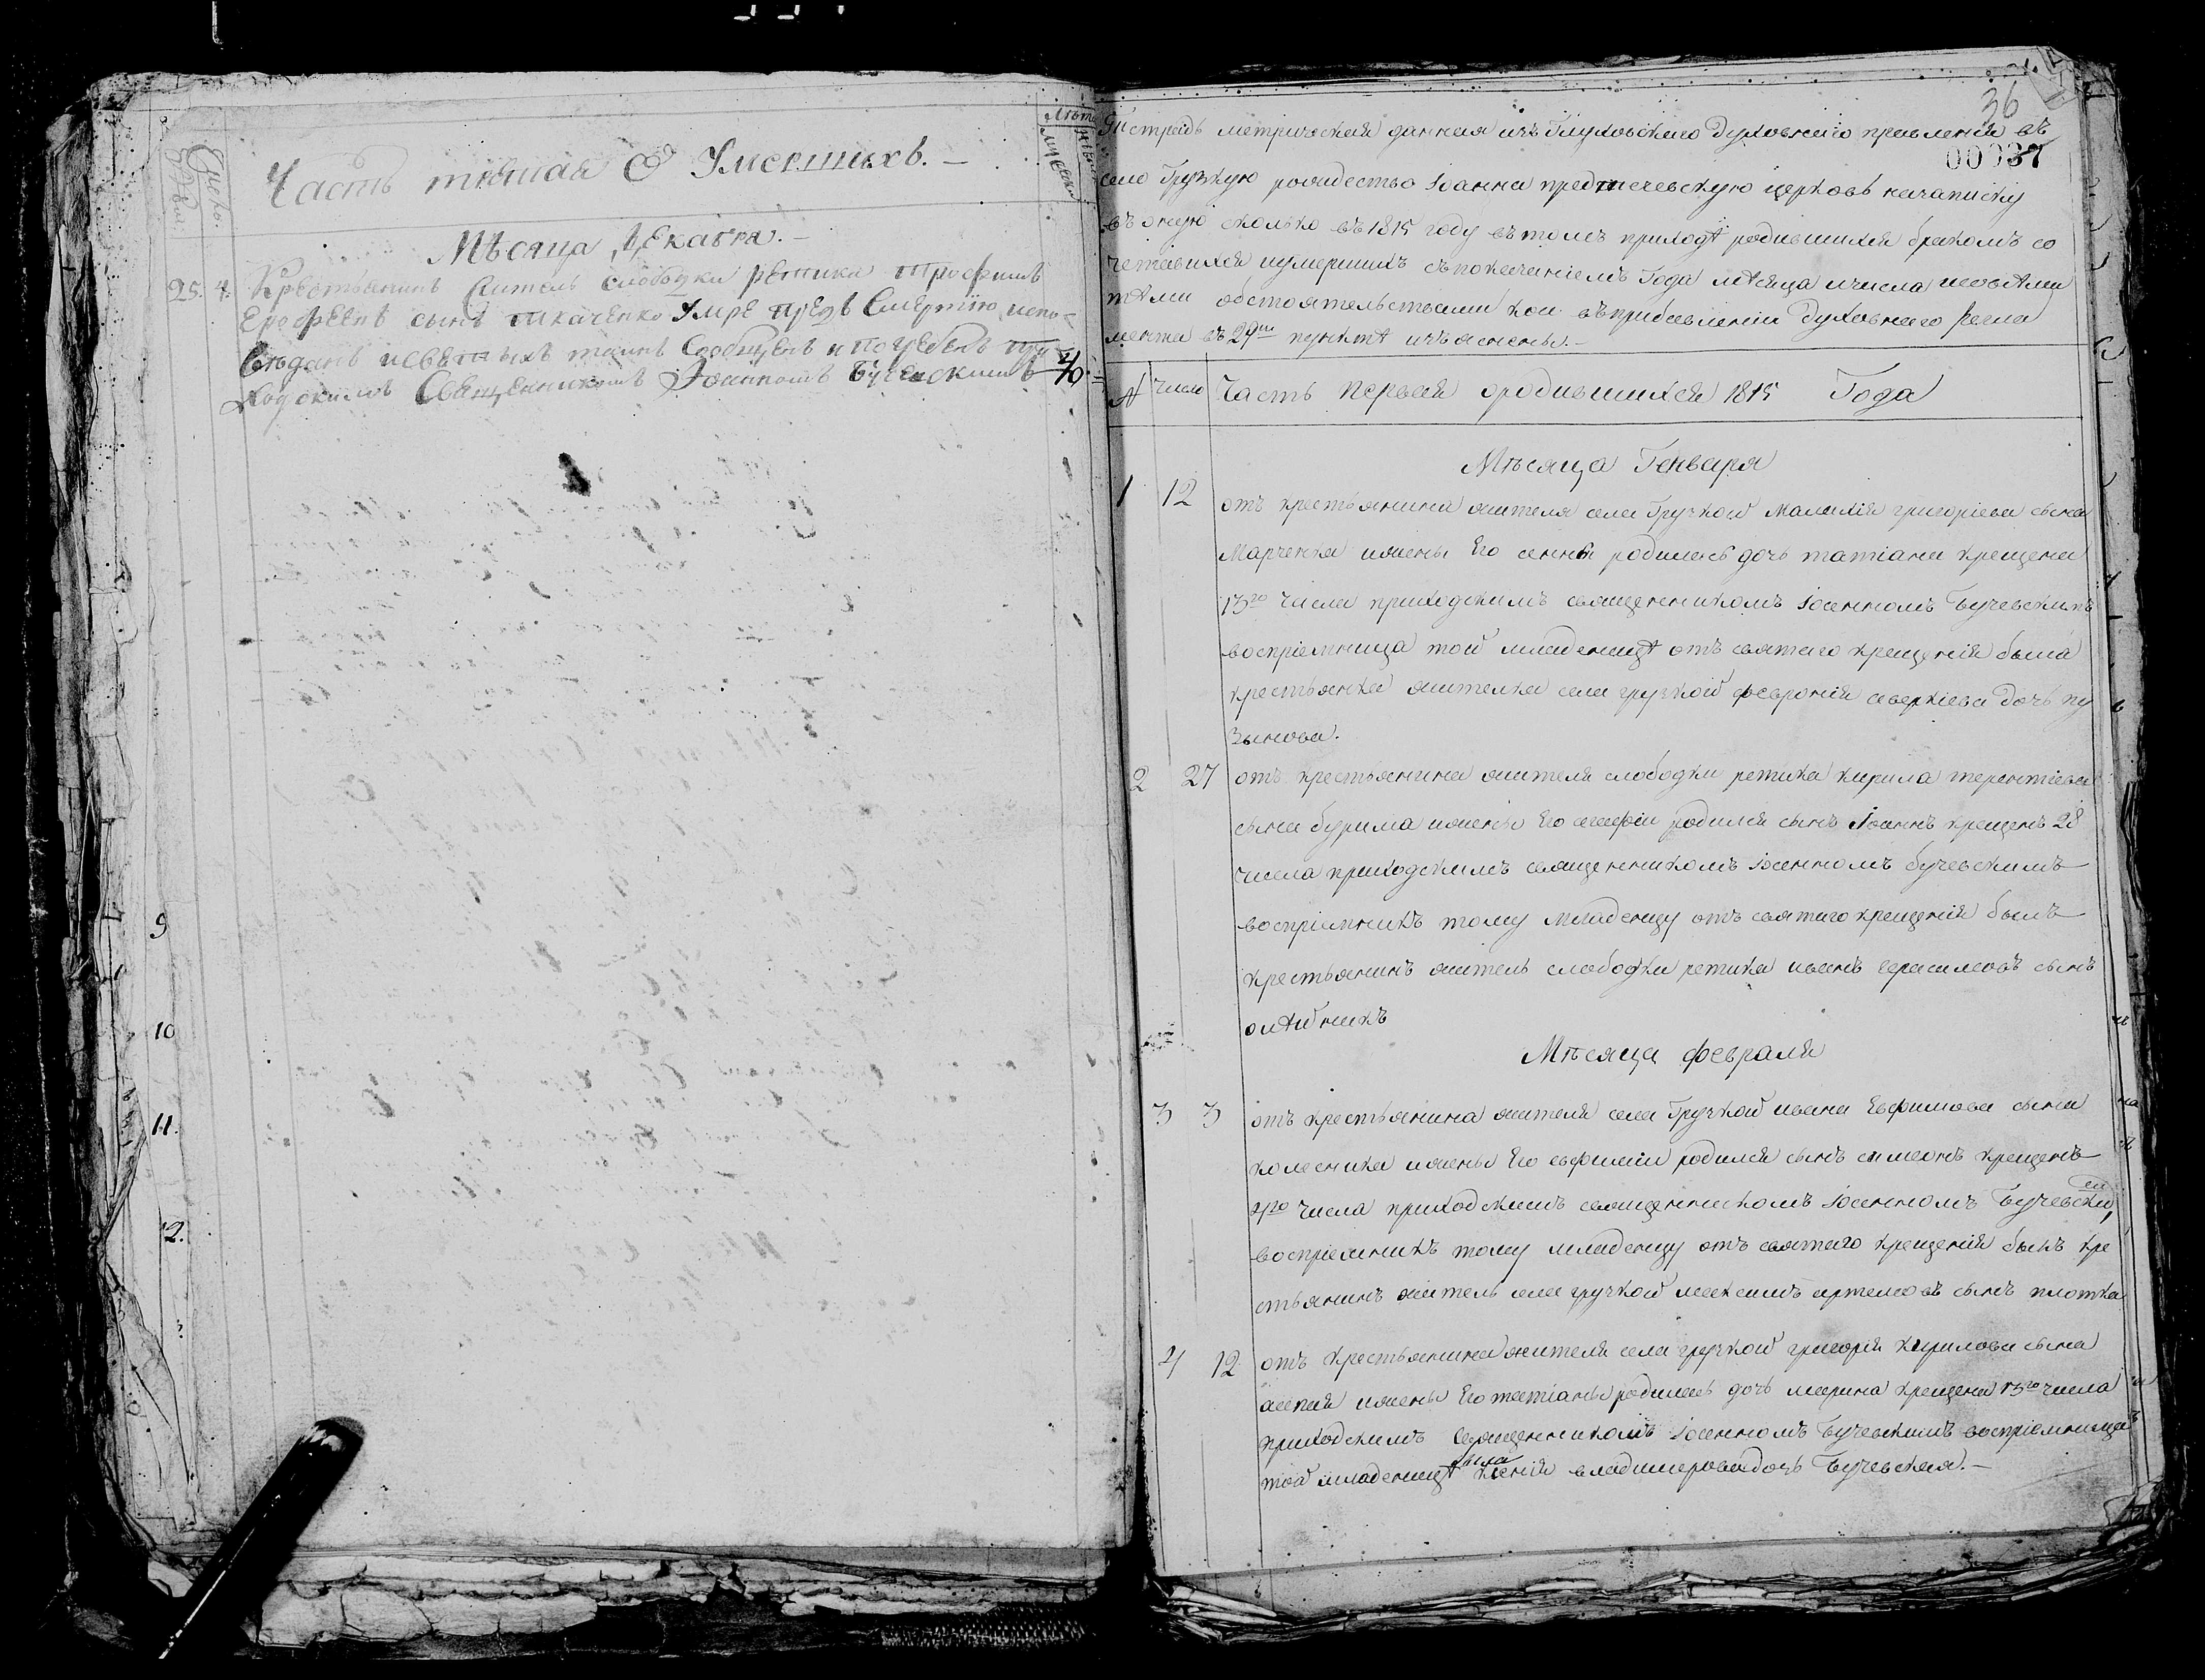 Часть третая О Умершихъ. —
Число
Лѣта
Мѣсяца Декабря. —
25. 4. Крестьянинъ житель слободки ретика Трофимъ
Ерофеевъ сынъ ткаченко Умре предъ Смертію испо=
вѣданъ и святыхъ таинъ Сообщенъ и погребенъ при
ходскимъ Священникомъ Іоанномъ Бучевскимъ 40.
9
10
11.
12.
36
00037
Тетрадь метрическая данная изъ Глуховского духовнаго правленія въ
село Грузкую рождество Іоанна предтечевскую церковь на записку
въ оную сколько въ 1815 году въ томъ приходѣ родившихся бракомъ со
четавшихся и умершихъ съ показаніемъ Года мѣсяца и числа и со всѣми
тѣми обстоятельствами кои въ прибавленіи духовнаго регла
мента въ 29мъ пунктѣ изъяснены. —
№ Число Часть первая о родившихся 1815 Года
Мѣсяца Генваря
1 12 отъ крестьянина жителя села Грузкой Малахія григоріева сына
Марченка и жены Его анны родилась дочь татіана крещена
13го числа приходскимъ священникомъ Іоанномъ Бучевскимъ
воспріемница той младеницѣ отъ святаго крещенія была
крестьянка жителка села грузкой феvронія аверкіева дочь пу
зынова.
2 27 отъ крестьянина жителя слободки ретика кирила терентіева
сына бурима и жены Его агафіи родился сынъ Іоаннъ крещенъ 28
числа приходскимъ священникомъ Іоанномъ бучевскимъ
воспріемникъ тому младенцу отъ святаго крещенія былъ
крестьянинъ житель слободки ретика иванъ герасимовъ сынъ
олѣйникъ
Мѣсяца февраля
3 3 отъ крестьянина жителя села Грузкой ивана Евфимова сына
колесника и жены Его евфиміи родился сынъ симеонъ крещенъ
4го числа приходскимъ священникомъ Іоанномъ Бучевски,
воспріемникъ тому младенцу отъ святаго крещенія былъ кре
стьянинъ житель села грузкой максимъ артемовъ сынъ плотка
4 12 отъ крестьянина жителя села грузкой григорія кирилова сына
и жены Его татіаны родилась дочь марина крещена 13го числа
приходскимъ священникомъ Іоанномъ Бучевскимъ воспріемница
той младеницѣ была ксенія владимерова дочь Бучевская. —